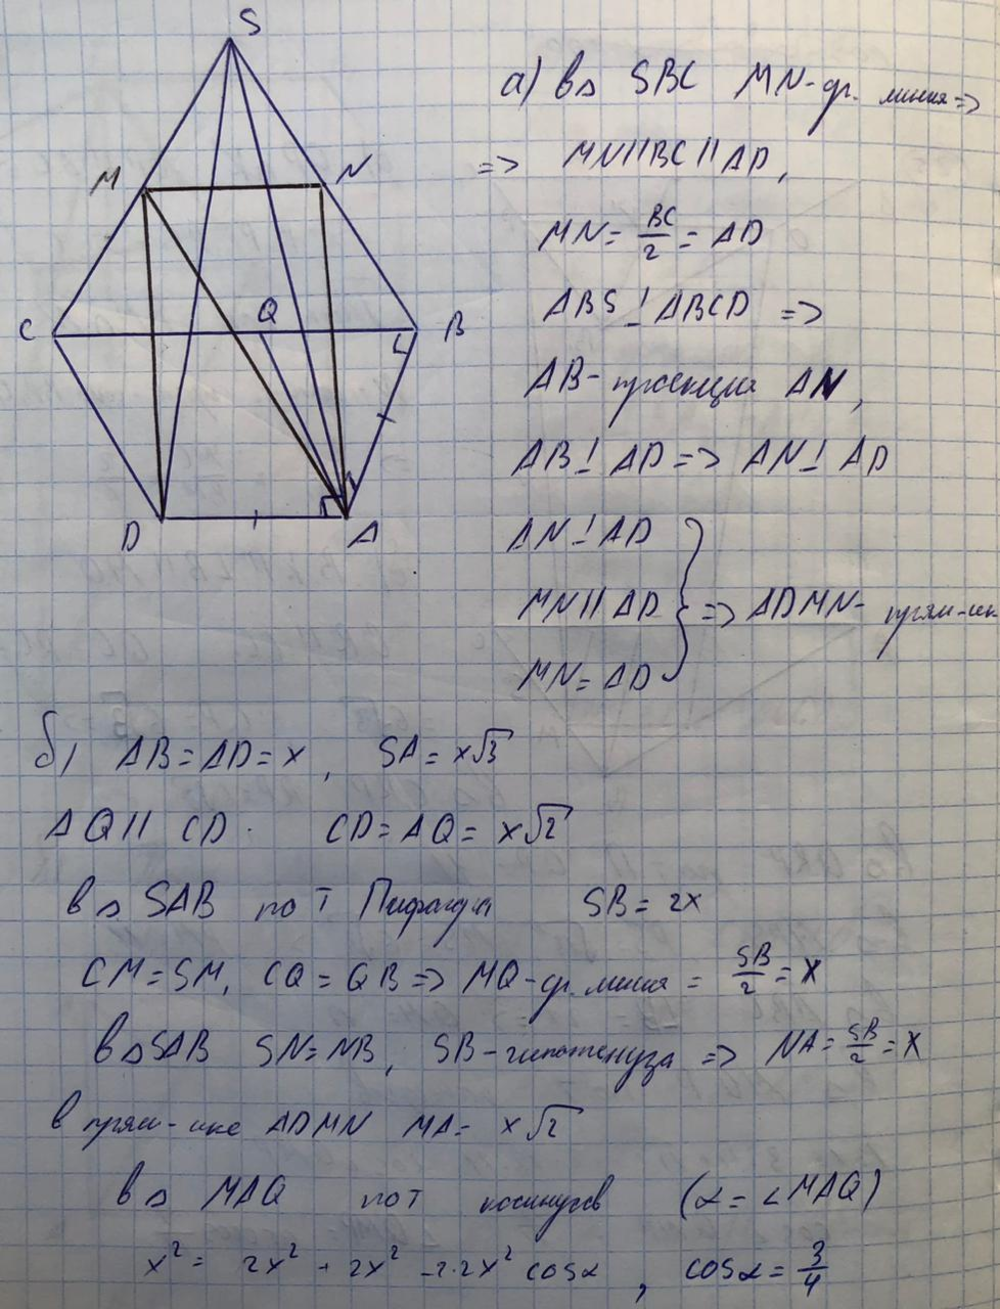 S
M
N
C
Q
B
D
A
а) в △ SBC MN-ср. линия =>
=> MN || BC || AD,
MN = BC/2 = AD
ABS ⊥ ABCD =>
AB - проекция AN,
AB ⊥ AD => AN ⊥ AD
AN ⊥ AD
MN || AD } => ADMN - прям-ик
MN = AD
б) AB = AD = x, SA = x√3
AQ || CD. CD = AQ = x√2
в △ SAB по т Пифагора SB = 2x
CM = SM, CQ = QB => MQ - ср. линия = SB/2 = x
в △ SAB SN = NB, SB - гипотенуза => NA = SB/2 = x
в прям-ике ADMN MA = x√2
в △ MAQ по т косинусов (α = ∠MAQ)
x² = 2x² + 2x² - 2·2x² cosα, cosα = 3/4